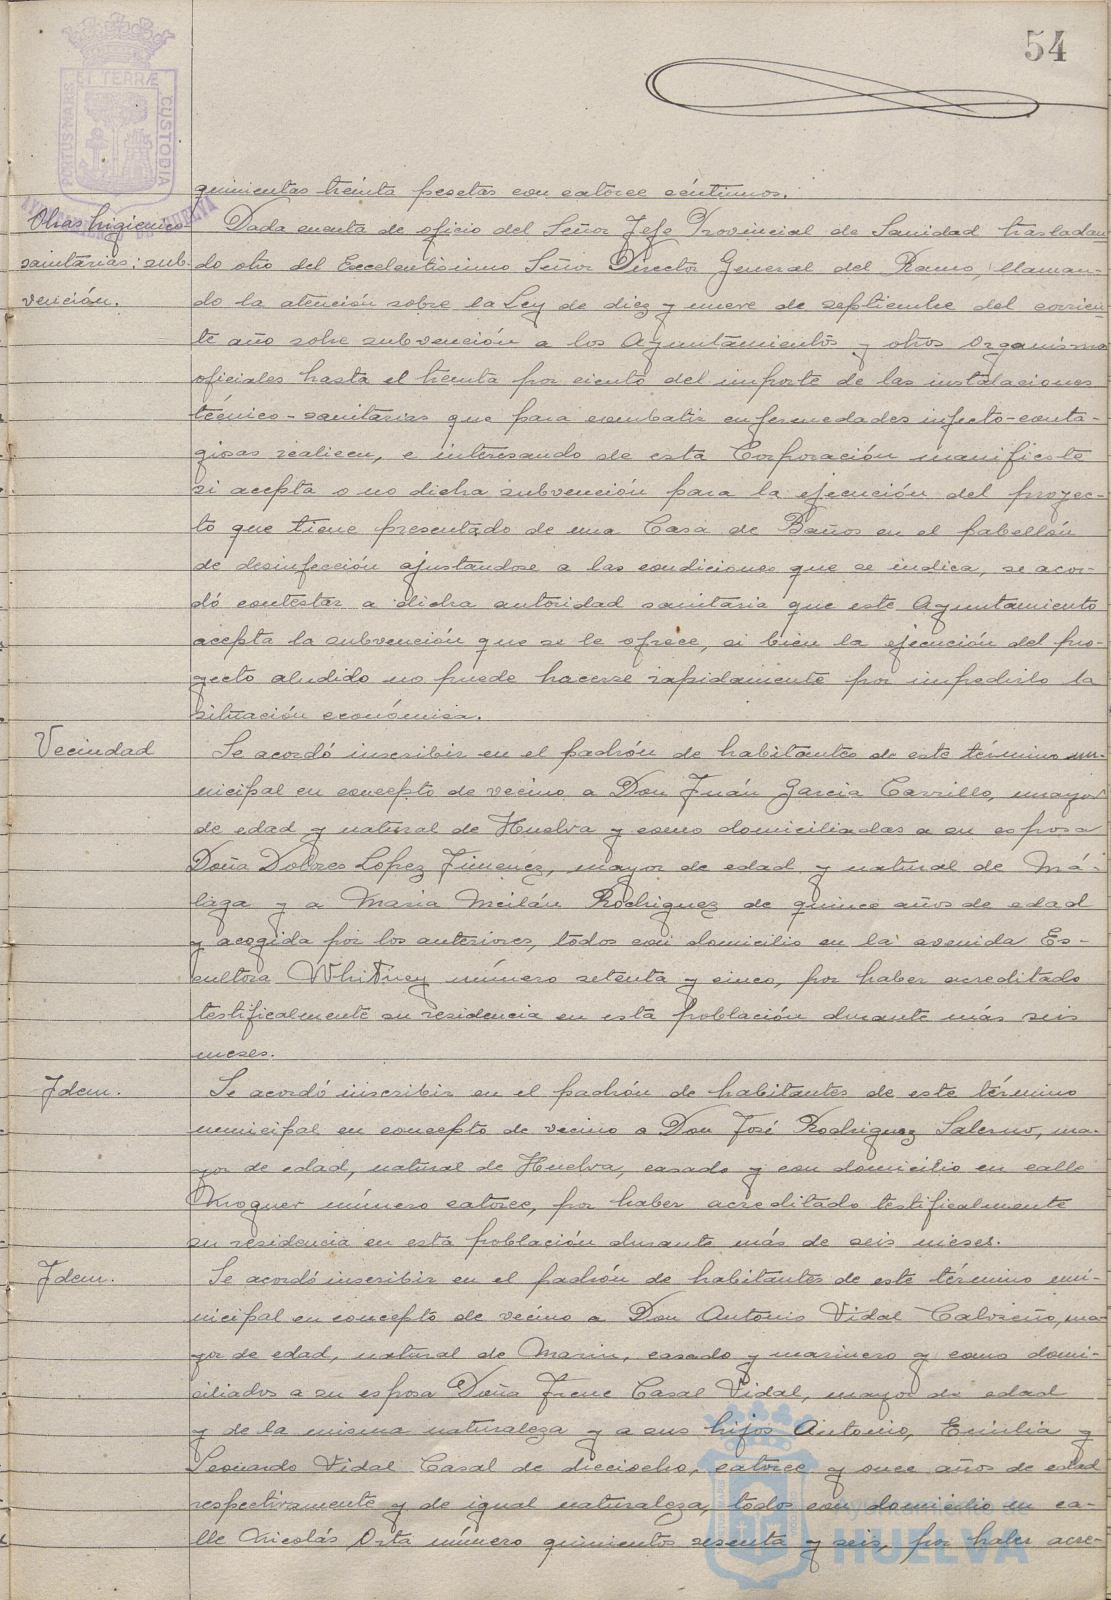 54
PORTUS MARIS ET TERRÆ CUSTODIA
AYUNTAMIENTO DE HUELVA
quinientas treinta pesetas con catorce céntimos.
Obras higiénico
sanitarias: sub-
vención.
Dada cuenta de oficio del Señor Jefe Provincial de Sanidad trasladan
do otro del Excelentísimo Señor Director General del Ramo, llaman-
do la atención sobre la Ley de diez y nueve de septiembre del corrien
te año sobre subvención a los Ayuntamientos y otros Organismos
oficiales hasta el treinta por ciento del importe de las instalaciones
técnico-sanitarias que para combatir enfermedades infecto-conta-
giosas realicen, e interesando de esta Corporación manifieste
si acepta o no dicha subvención para la ejecución del proyec-
to que tiene presentado de una Casa de Baños en el pabellón
de desinfección ajustandose a las condiciones que se indica, se acor-
dó contestar a dicha autoridad sanitaria que este Ayuntamiento
acepta la subvención que se le ofrece, si bien la ejecución del pro-
yecto aludido no puede hacerse rápidamente por impedirlo la
situación económica.
Vecindad
Se acordó inscribir en el padrón de habitantes de este término mu-
nicipal en concepto de vecino a Don Juán Garcia Carrillo, mayor
de edad y natural de Huelva y como domiciliadas a su esposa
Doña Dolores Lopez Jimenéz, mayor de edad y natural de Má-
laga y a Maria Meilán Rodriguez de quince años de edad
y acogida por los anteriores, todos con domicilio en la avenida Es-
cultora Whitney número setenta y cinco, por haber acreditado
testificalmente su residencia en esta población durante más seis
meses.
Idem.
Se acordó inscribir en el padrón de habitantes de este término
municipal en concepto de vecino a Don José Rodriguez Salerno, ma-
yor de edad, natural de Huelva, casado y con domicilio en calle
Moguer número catorce, por haber acreditado testificalmente
su residencia en esta población durante más de seis meses.
Idem.
Se acordó inscribir en el padrón de habitantes de este término mu-
nicipal en concepto de vecino a Don Antonio Vidal Calvreño, ma-
yor de edad, natural de Marin, casado y marinero y como domi-
ciliados a su esposa Doña Irene Casal Vidal, mayor de edad
y de la misma naturaleza y a sus hijos Antonio, Emilia y
Leonardo Vidal Casal de dieciocho, catorce y once años de edad
respectivamente y de igual naturaleza, todos con domicilio en ca-
lle Nicolás Orta número quinientos sesenta y seis, por haber acre-
Ayuntamiento de
HUELVA